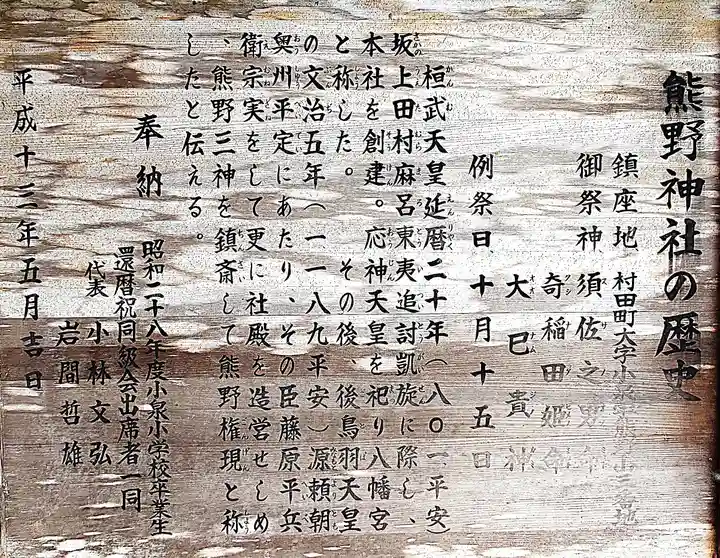 熊野神社の歴史
鎮座地 村田町大字小泉字熊野山三番地
御祭神 須佐之男命
奇稲田姫命
大巳貴神
例祭日 十月十五日
桓武天皇延暦二十年(八〇一平安)
坂上田村麻呂東夷追討凱旋に際し、
本社を創建。応神天皇を祀り八幡宮
と称した。 その後、後鳥羽天皇
の文治五年(一一八九平安)源頼朝
奥州平定にあたり、その臣藤原平兵
衛宗実をして更に社殿を造営せしめ
、熊野三神を鎮斎して熊野権現と称
したと伝える。
奉納
昭和二十八年度小泉小学校卒業生
還暦祝同級会出席者一同
代表 小林文弘
岩間哲雄
平成十三年五月吉日